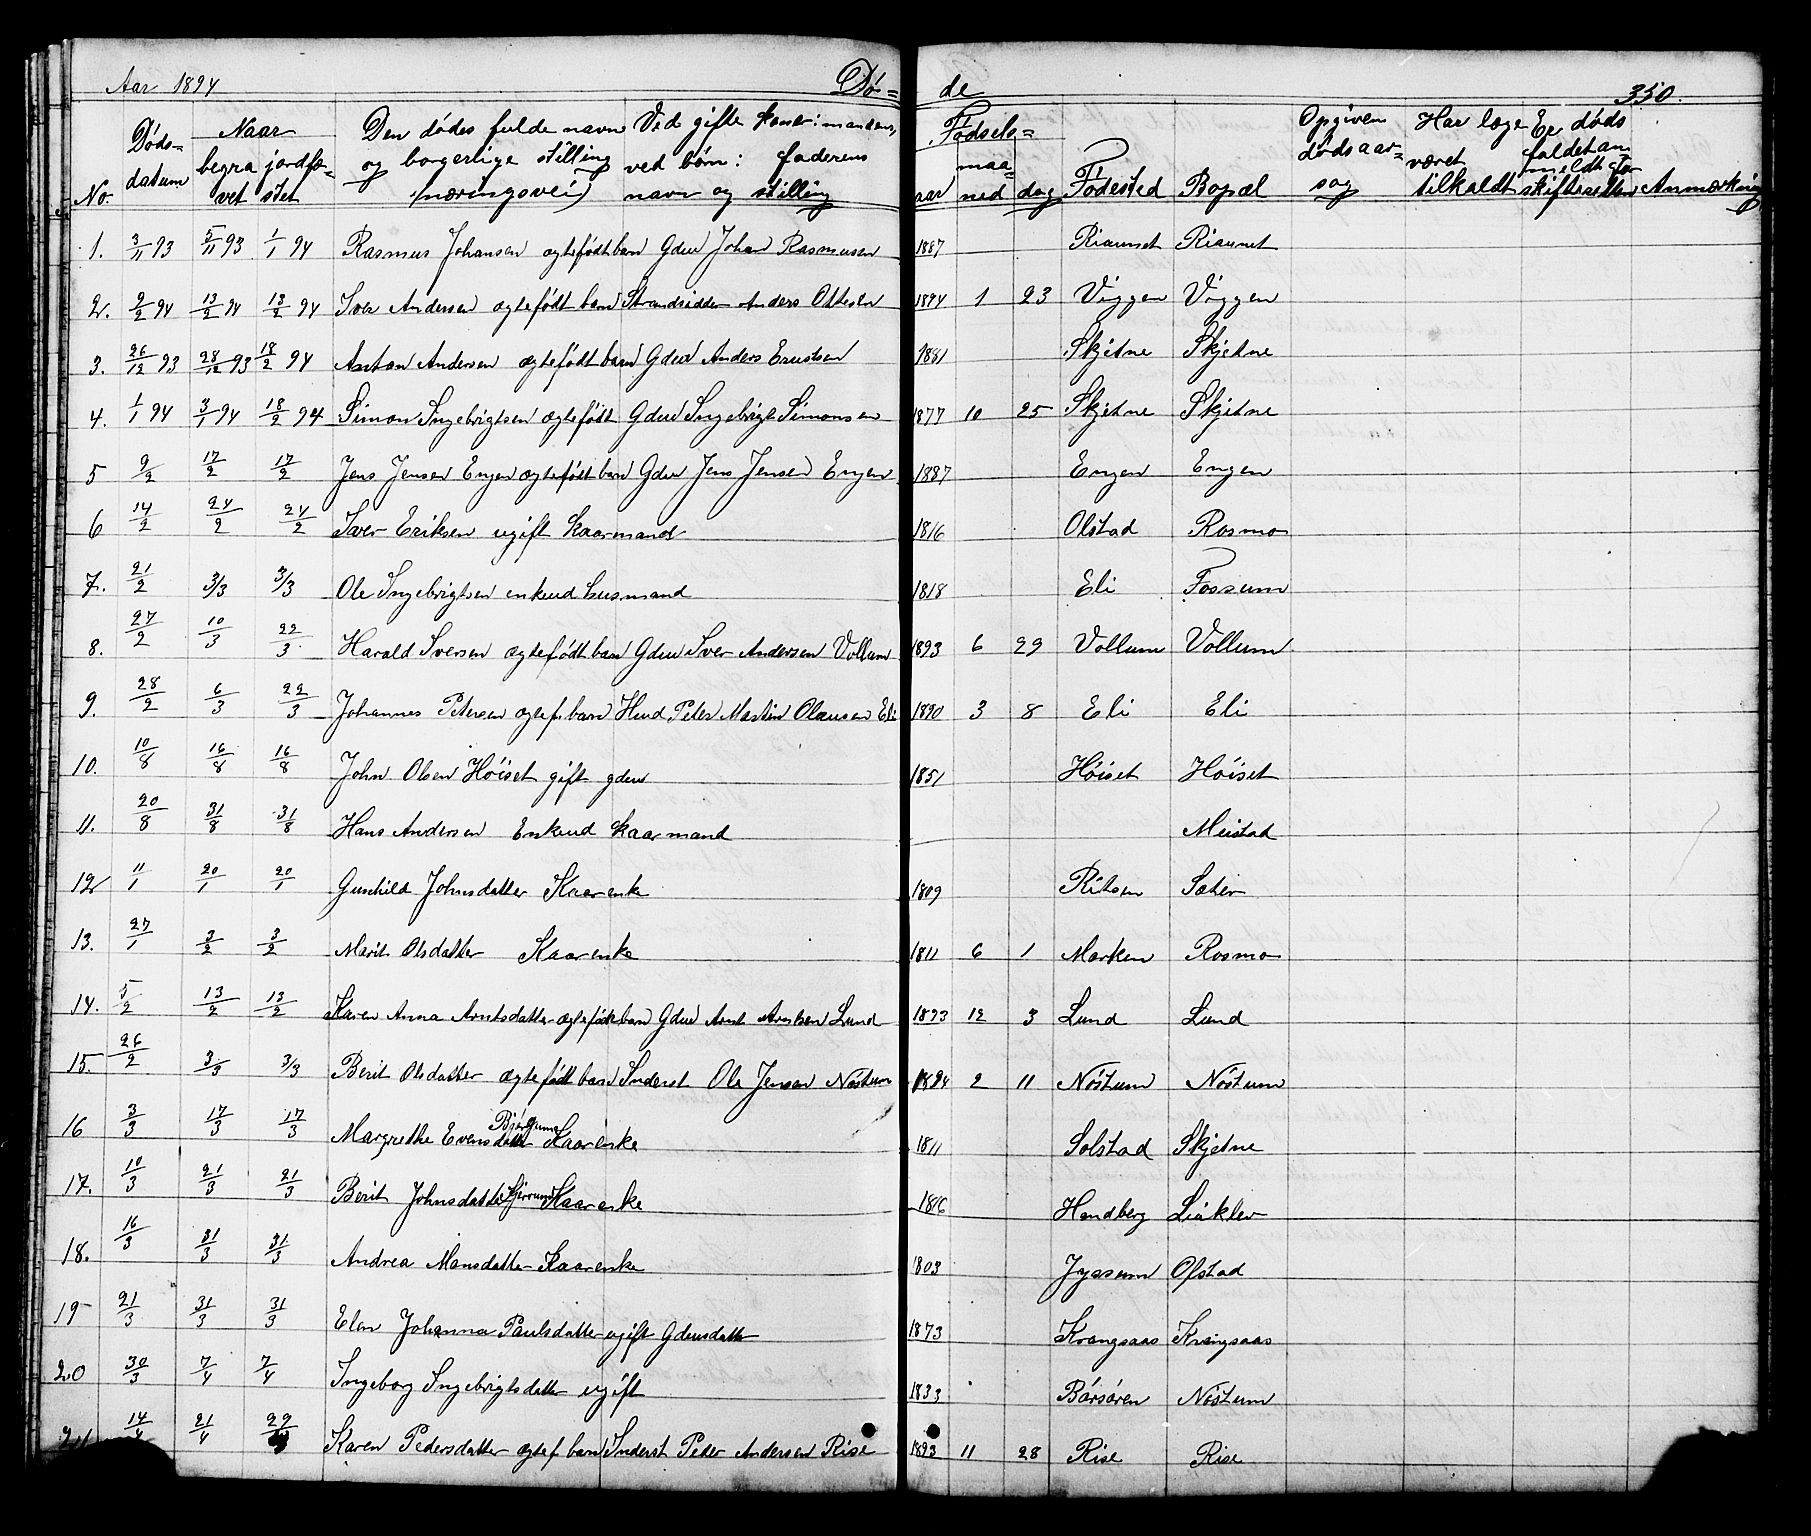 Aar 1894 Dö= de 350.
No. Döds=datum Naar begravet jordfæstet Den dödes fulde navn og borgerlige stilling (næringsvei) Ved gifte koner: mandens, ved börn: faderens navn og stilling Fødsels= aar maaned dag Födested Bopæl Opgiven dödsaarsag Har læge været tilkaldt Er döds faldet anmeldt for skifteretten Anmærkning
1. 3/11 93 5/11 93 1/1 94 Rasmus Johansen ægtefödt barn Gdm Johan Rasmusen 1887 Riaunet Riaunet
2. 9/2 94 13/2 94 13/2 94 Iver Andersen ægtefödt barn Strandsidder Anders Ottesen 1894 1 23 Viggen Viggen
3. 26/12 93 28/12 93 18/2 94 Anton Andersen ægtefödt barn Gdm Anders Erustsen 1881 Skjetne Skjetne
4. 1/1 94 3/1 94 18/2 94 Simon Ingebrigtsen ægtefödt Gdm Ingebrigt Simonsen 1877 10 25 Skjetne Skjetne
5 9/2 17/2 17/2 Jens Jensen Engen ægtefödt barn Gdm Jens Jensen Engen 1887 Engen Engen
6 14/2 24/2 24/2 Iver Eriksen ugift kaarmand 1816 Olstad Rosmo
7. 21/2 3/3 3/3 Ole Ingebrigtsen enkmd husmand 1818 Eli Fossum
8. 27/2 10/3 22/3 Harald Iversen ægtefödt barn Gdm Iver Andersen Vollum 1893 6 29 Vollum Vollum
9. 28/2 6/3 22/3 Johannes Petersen ægtef. barn Hmd Peter Martin Olausen Eli 1890 3 8 Eli Eli
10. 10/8 16/8 16/8 John Olsen Höiset gift gdm 1851 Höiset Höiset
11. 20/8 31/8 31/8 Hans Andersen Enkmd kaarmand Meistad
12 11/1 20/1 20/1 Gunhild Johnsdatter Kaarenke 1809 Ritsen Sæter
13. 27/1 3/2 3/2 Marit Olsdatter Kaarenke 1811 6 1 Marken Rosmo
14. 5/2 13/2 13/2 Karen Anna Arntsdatter ægtefödt barn Gdm Arnt Arntsen Lund 1893 12 3 Lund Lund
15. 26/2 3/3 3/3 Berit Olsdatter ægtefödt barn Inderst Ole Jensen Nöstum 1894 2 11 Nöstum Nöstum
16 3/3 17/3 17/3 Margrethe Evensdatter Kaarenke 1811 Solstad Skjetne
17. 10/3 21/3 21/3 Berit Johnsdatter Kaarenke 1816 Handberg Liaklev
18. 16/3 31/3 31/3 Andrea Monsdatter Kaarenke 1803 Jyssum Ofstad
19 21/3 31/3 31/3 Elen Johanna Paulsdatter ugift Gdmsdatter 1873 Krangsaas Krangsaas
20 30/3 7/4 7/4 Ingeborg Ingebrigtsdatter ugift 1833 Börsören Nöstum
21 14/4 21/4 29/4 Karen Pedersdatter ægtef. barn Inderst Peder Andersen Rise 1893 11 28 Rise Rise